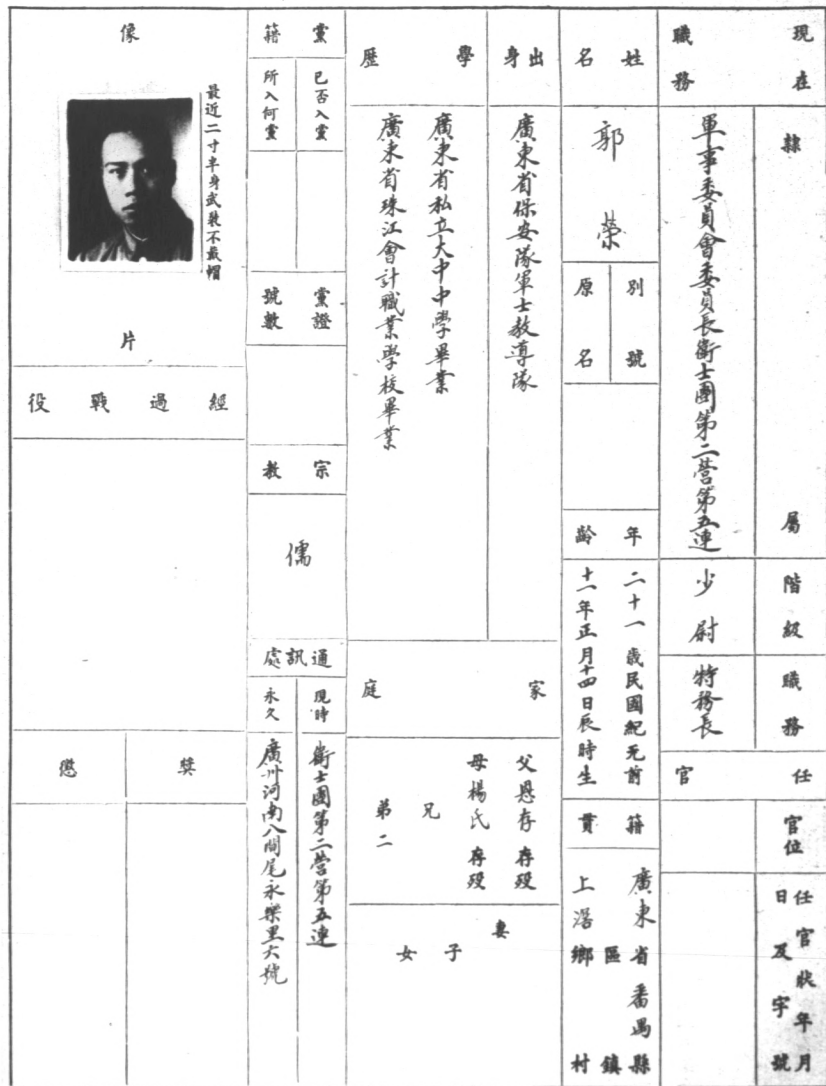 現在職務
隸屬
軍事委員會委員長衛士團第二營第五連
階級
少尉
職務
特務長
任官
官位
任官狀年月日及字號
姓名
郭榮
別號
原名
年齡
二十一歲民國紀元前
十一年正月十四日辰時生
籍貫
廣東省番禺縣
區鎮
上滘鄉村
出身
廣東省保安隊軍士教導隊
學歷
廣東省私立大中中學畢業
廣東省珠江會計職業學校畢業
家庭
父恩存 存歿
母楊氏 存歿
兄
弟二
妻
子
女
黨籍
已否入黨
所入何黨
黨證號數
宗教
儒
通訊處
現時
衛士團第二營第五連
永久
廣州河南八間尾永樂里六號
像片
最近二寸半身武裝不戴帽
經過戰役
獎
懲